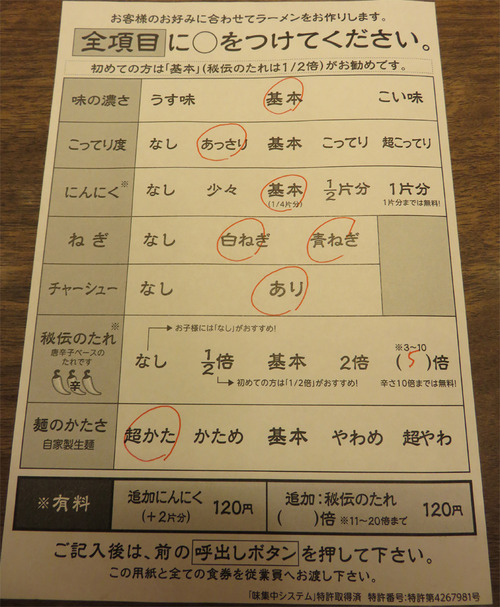 お客様のお好みに合わせてラーメンをお作りします。
全項目に○をつけてください。
初めての方は「基本」(秘伝のたれは1/2倍)がお勧めです。
味の濃さ うす味 基本 こい味
こってり度 なし あっさり 基本 こってり 超こってり
にんにく※ なし 少々 基本 1/2片分 1片分
(1/4片分) 1片分までは無料!
ねぎ なし 白ねぎ 青ねぎ
チャーシュー なし あり
お子様には「なし」がおすすめ!
秘伝のたれ※ なし 1/2倍 基本 2倍 ※3~10 (5)倍
唐辛子ベースの
たれです
辛
初めての方は「1/2倍」がおすすめ! 辛さ10倍までは無料!
麺のかたさ 超かた かため 基本 やわめ 超やわ
自家製生麺
※有料 追加にんにく 120円 追加:秘伝のたれ 120円
(+2片分) ( )倍 ※11~20倍まで
ご記入後は、前の呼出しボタンを押して下さい。
この用紙と全ての食券を従業員へお渡し下さい。
「味集中システム」特許取得済 特許番号:特許第4267981号